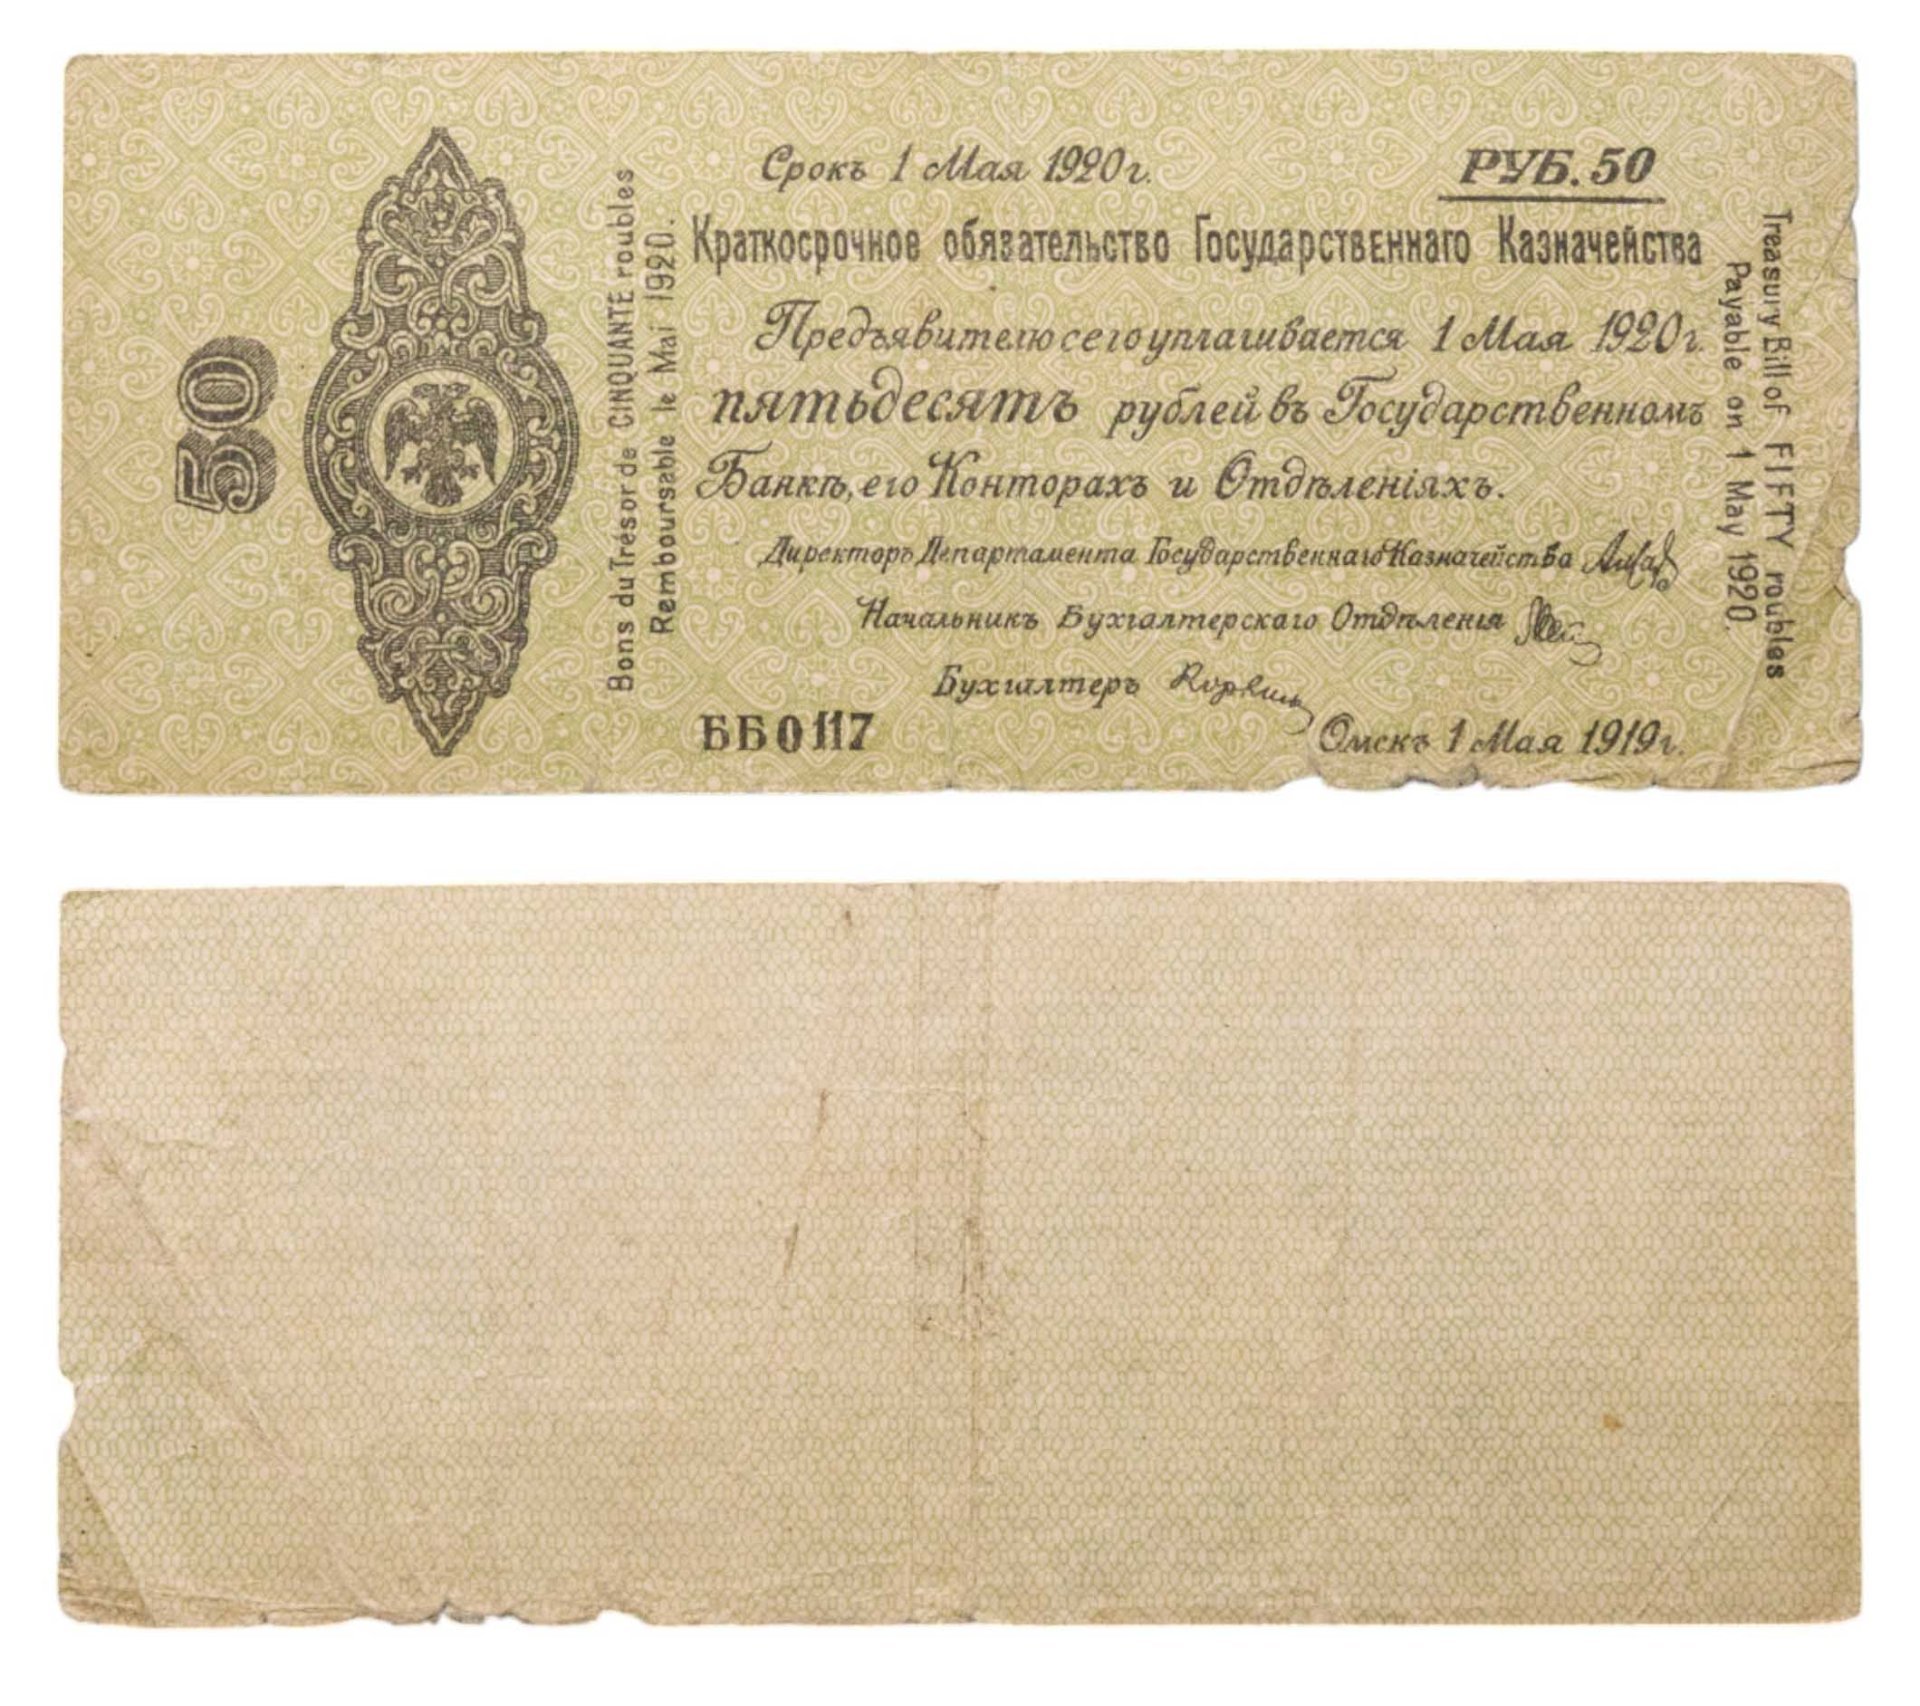 50
Bons du Trésor de CINQUANTE roubles
Remboursable le Mai 1920.
Срокъ 1 Мая 1920 г.
РУБ. 50
Краткосрочное обязательство Государственнаго Казначейства
Предъявителю сего уплачивается 1 Мая 1920 г.
пятьдесятъ рублей въ Государственномъ
Банкѣ, его Конторахъ и Отдѣленіяхъ.
Директоръ Департамента Государственнаго Казначейства
Начальникъ Бухгалтерскаго Отдѣленія
Бухгалтеръ
ББ0117
Омскъ 1 Мая 1919 г.
Treasury Bill of FIFTY roubles
Payable on 1 May 1920.